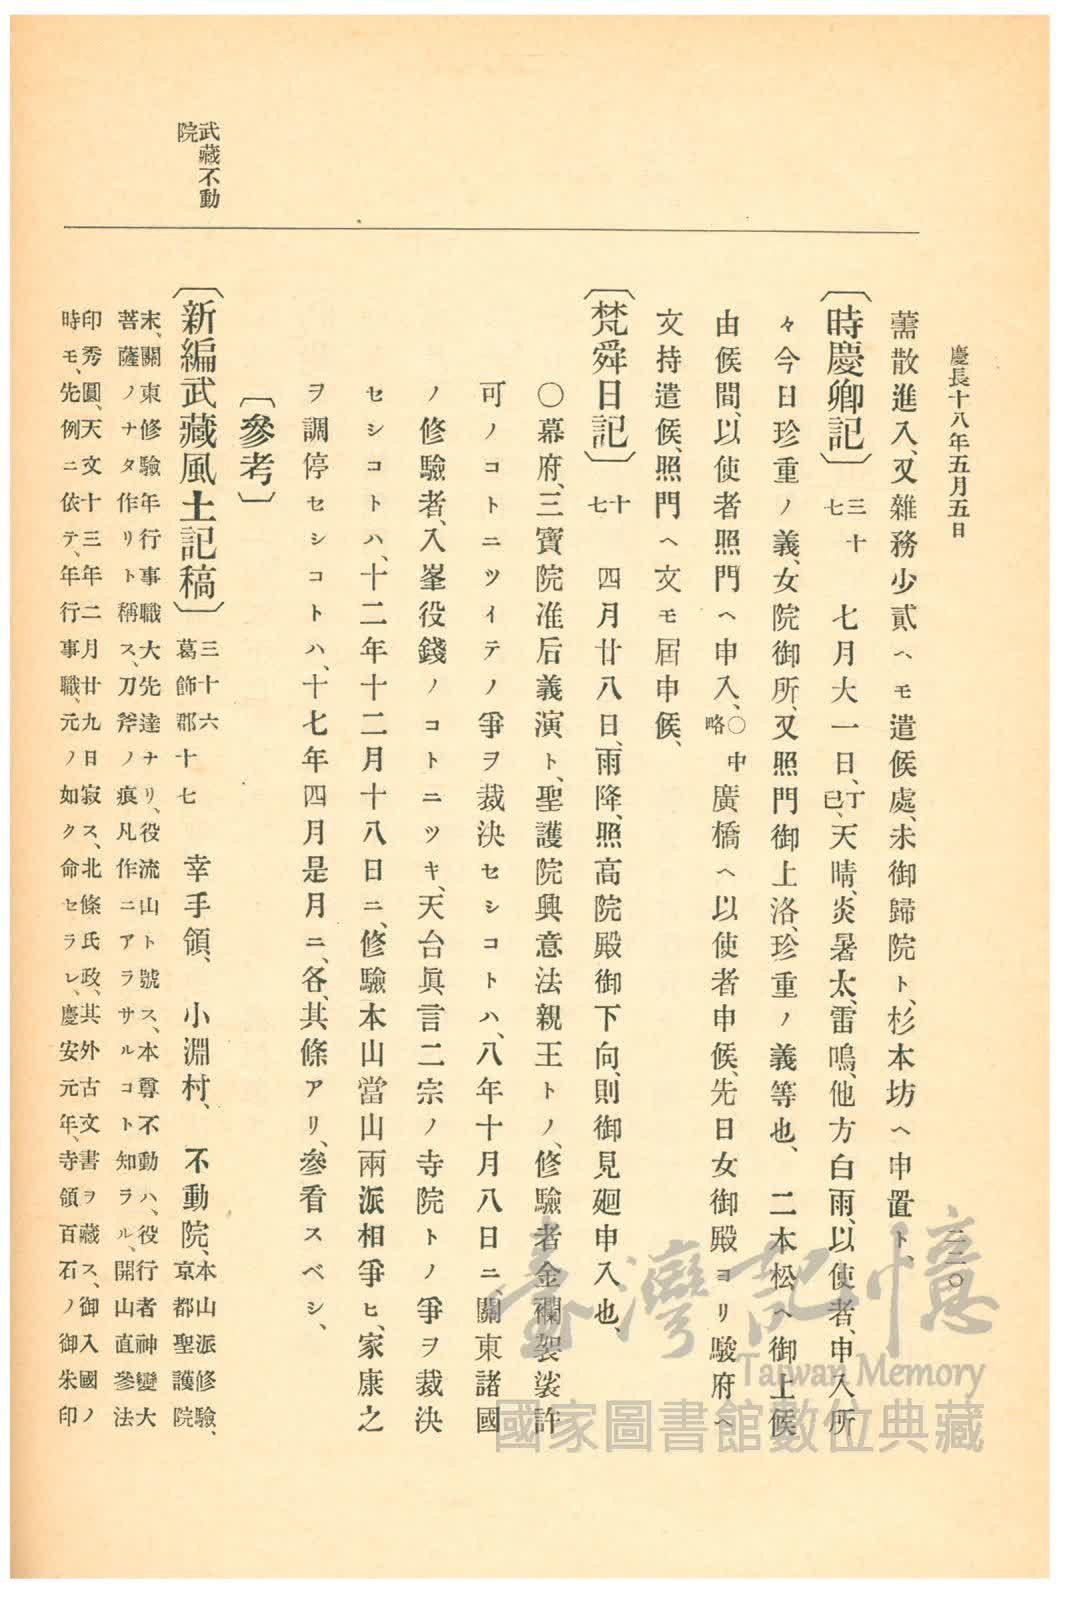 慶長十八年五月五日
二二〇
薷散進入、又雜務少貳ヘモ遣候處、未御歸院ト、杉本坊ヘ申置ト、
〔時慶卿記〕 三十七 七月大一日、丁巳、天晴、炎暑太、雷鳴、他方白雨、以使者、申入所
々今日珍重ノ義、女院御所、又照門御上洛、珍重ノ義等也、二本松ヘ御上候
由候間、以使者照門ヘ申入、〇中略 廣橋ヘ以使者申候、先日女御殿ヨリ駿府ヘ
文持遣候、照門ヘ文モ屆申候、
〔梵舜日記〕 十七 四月廿八日、雨降、照高院殿御下向、則御見廻申入也、
〇幕府、三寶院准后義演ト、聖護院興意法親王トノ、修驗者金襴袈裟許
可ノコトニツイテノ爭ヲ裁決セシコトハ、八年十月八日ニ、關東諸國
ノ修驗者、入峯役錢ノコトニツキ、天台眞言二宗ノ寺院トノ爭ヲ裁決
セシコトハ、十二年十二月十八日ニ、修驗本山當山兩派相爭ヒ、家康之
ヲ調停セシコトハ、十七年四月是月ニ、各、其條アリ、參看スベシ、
〔參考〕
武藏不動院
〔新編武藏風土記稿〕 三十六 葛飾郡 十七 幸手領、小淵村、不動院、本山派修驗、京都聖護院
末、關東修驗年行事職大先達ナリ、役流山ト號ス、本尊不動ハ、役行者神變大
菩薩ノナタ作リト稱ス、刀斧ノ痕凡作ニアラサルコト知ラル、開山直參法
印秀圓、天文十三年二月廿九日寂ス、北條氏政、其外古文書ヲ藏ス、御入國ノ
時モ、先例ニ依テ、年行事職、元ノ如ク命セラレ、慶安元年、寺領百石ノ御朱印
臺灣記憶
Taiwan Memory
國家圖書館數位典藏